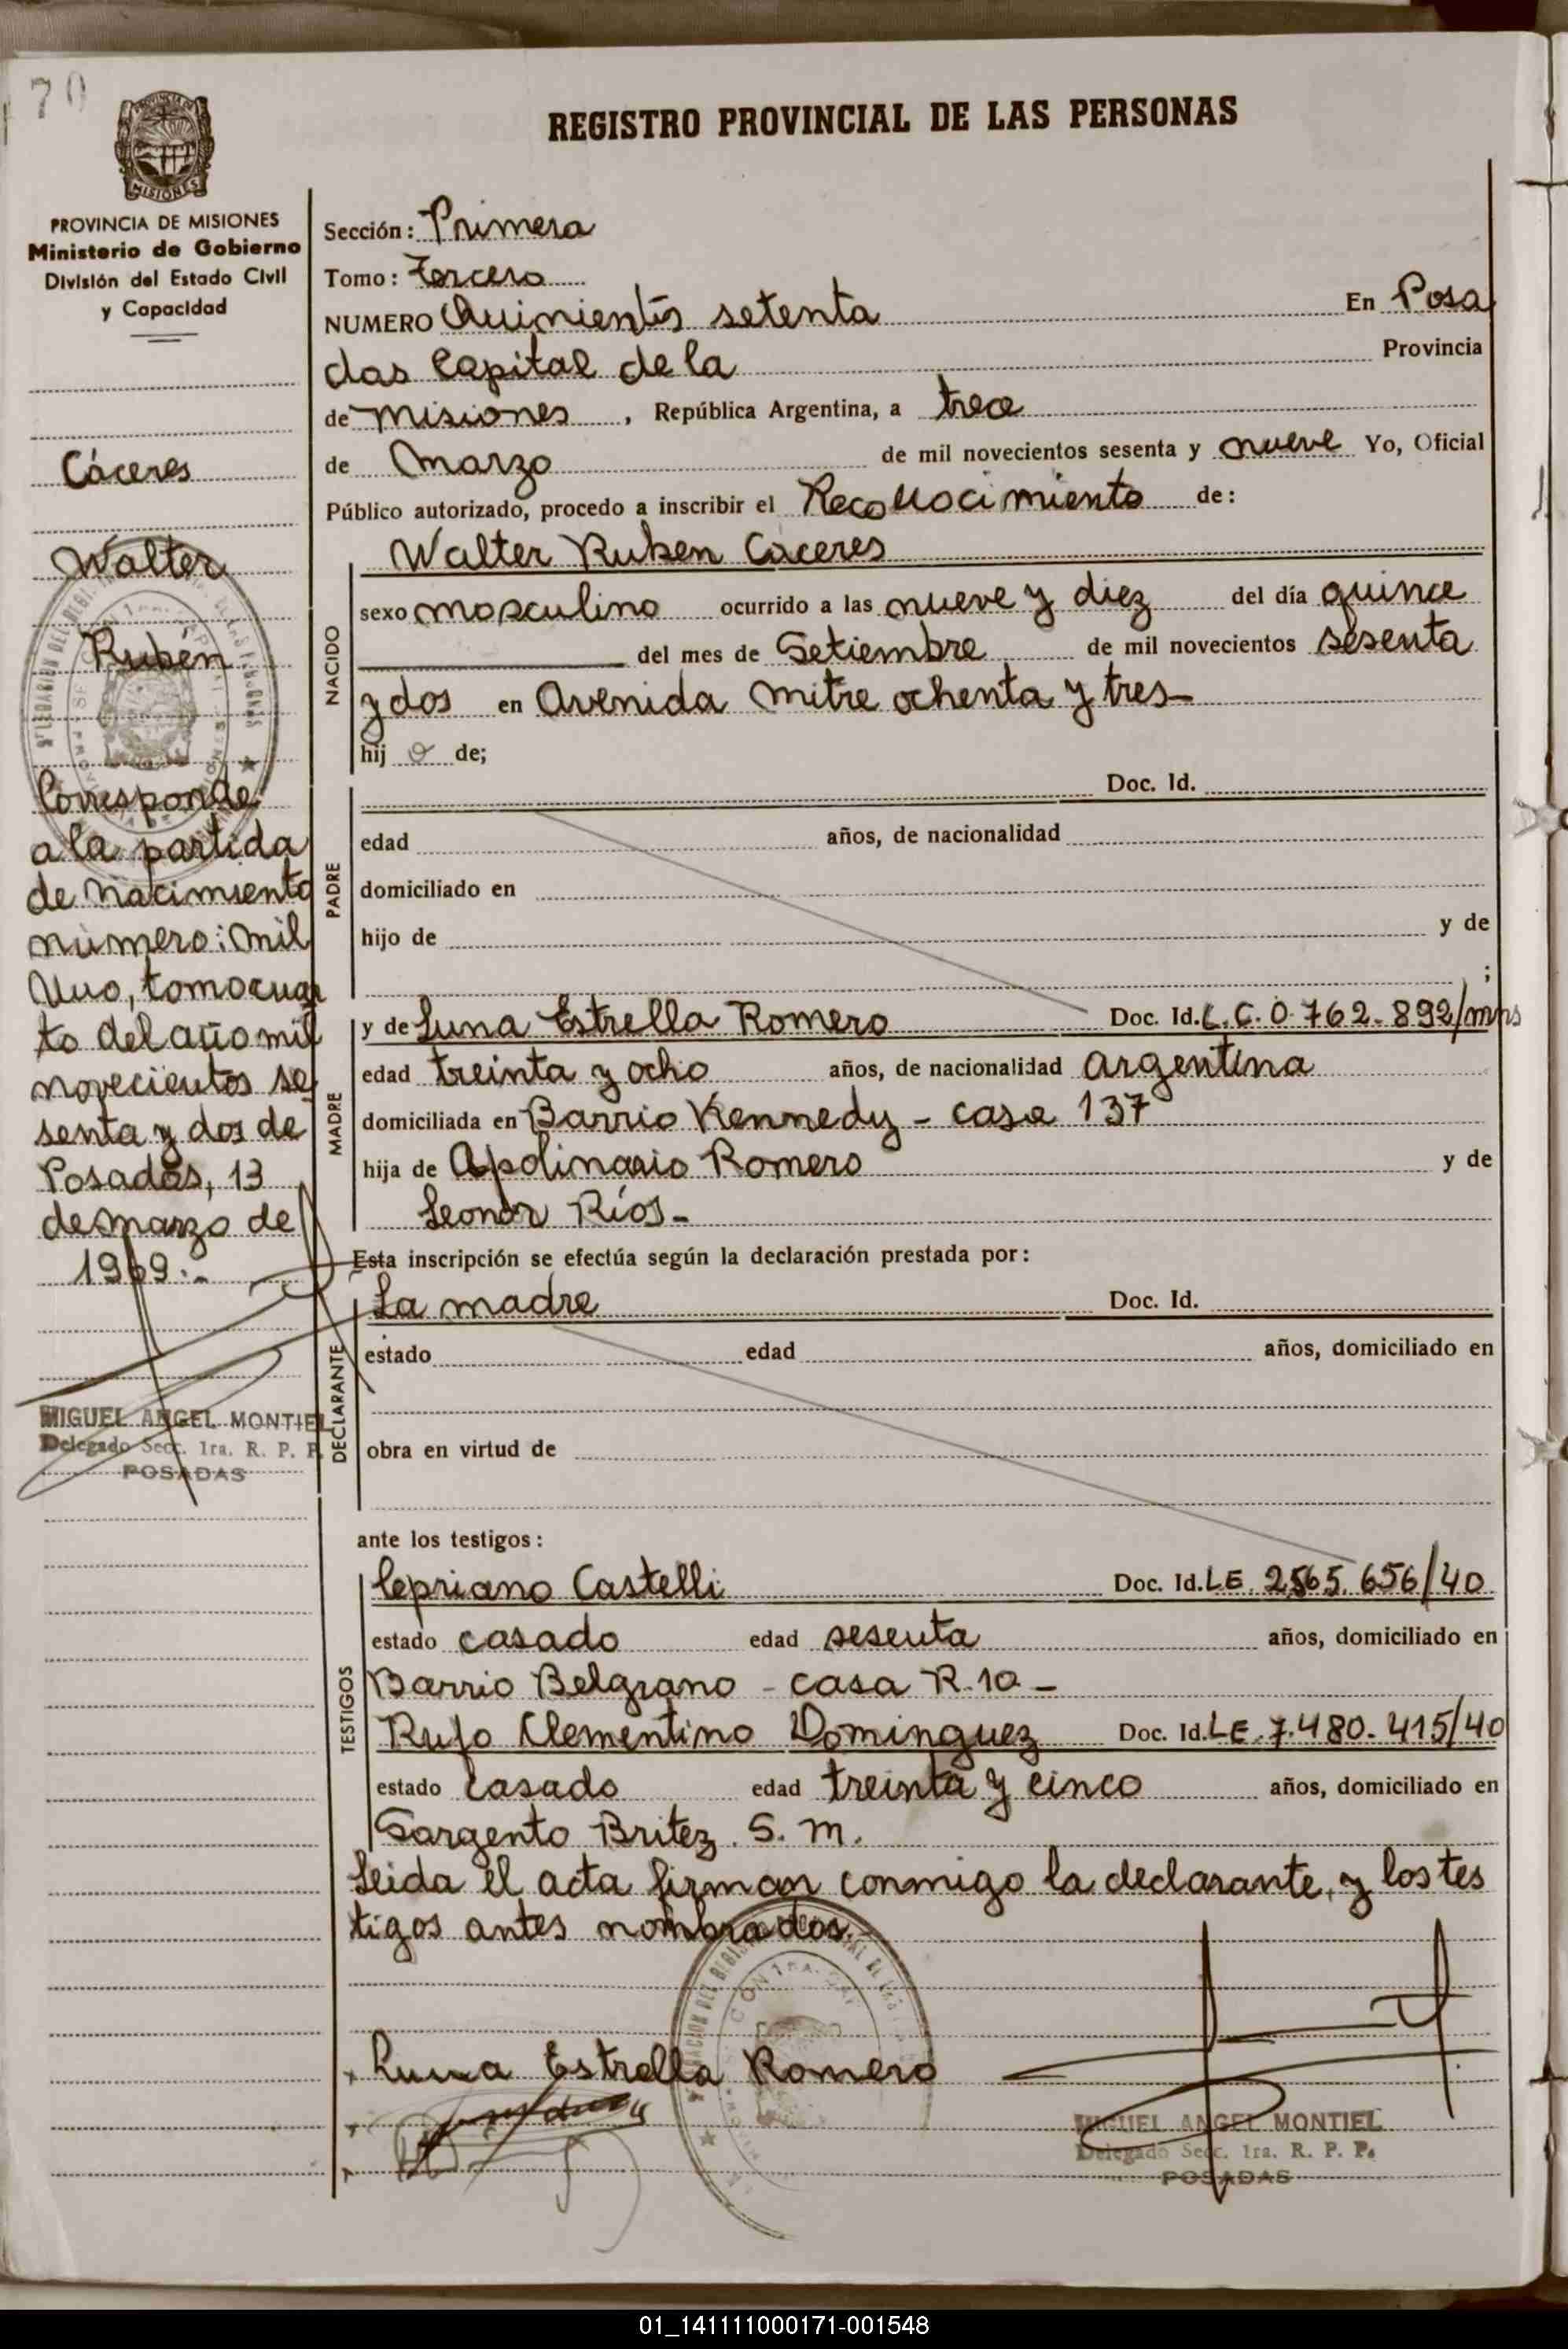 70
REGISTRO PROVINCIAL DE LAS PERSONAS
PROVINCIA DE MISIONES
Ministerio de Gobierno
División del Estado Civil
y Capacidad
Cáceres
Walter
Rubén
Corresponde
a la partida
de nacimiento
número: mil
Uno, tomo cuar
to del año mil
novecientos se
senta y dos de
Posadas, 13
de marzo de
1969.-
MIGUEL ANGEL MONTIEL
Delegado Secc. 1ra. R. P. P.
POSADAS
Sección: Primera
Tomo: Tercero
NUMERO Quinientos setenta En Posa
das Capital de la Provincia
de Misiones, República Argentina, a trece
de Marzo de mil novecientos sesenta y nueve Yo, Oficial
Público autorizado, procedo a inscribir el Reconocimiento de:
Walter Ruben Caceres
NACIDO
sexo masculino ocurrido a las nueve y diez del día quince
del mes de Setiembre de mil novecientos sesenta
y dos en Avenida Mitre ochenta y tres-
hijo de;
PADRE
Doc. Id.
edad años, de nacionalidad
domiciliado en
hijo de y de
;
MADRE
y de Luna Estrella Romero Doc. Id. L.C. 0.762.892/mns
edad treinta y ocho años, de nacionalidad argentina
domiciliada en Barrio Kennedy - casa 137
hija de Apolinario Romero y de
Leonor Ríos-
Esta inscripción se efectúa según la declaración prestada por:
DECLARANTE
La madre Doc. Id.
estado edad años, domiciliado en
obra en virtud de
ante los testigos:
TESTIGOS
Cepriano Castelli Doc. Id. LE. 2.565.656/40
estado casado edad sesenta años, domiciliado en
Barrio Belgrano - casa R.10-
Rufo Clementino Dominguez Doc. Id. LE. 7.480.415/40
estado casado edad treinta y cinco años, domiciliado en
Sargento Britez S. M.
Leida el acta firman conmigo la declarante, y los tes
tigos antes nombrados.-
Luna Estrella Romero
MIGUEL ANGEL MONTIEL
Delegado Secc. 1ra. R. P. P.
POSADAS
01_141111000171-001548